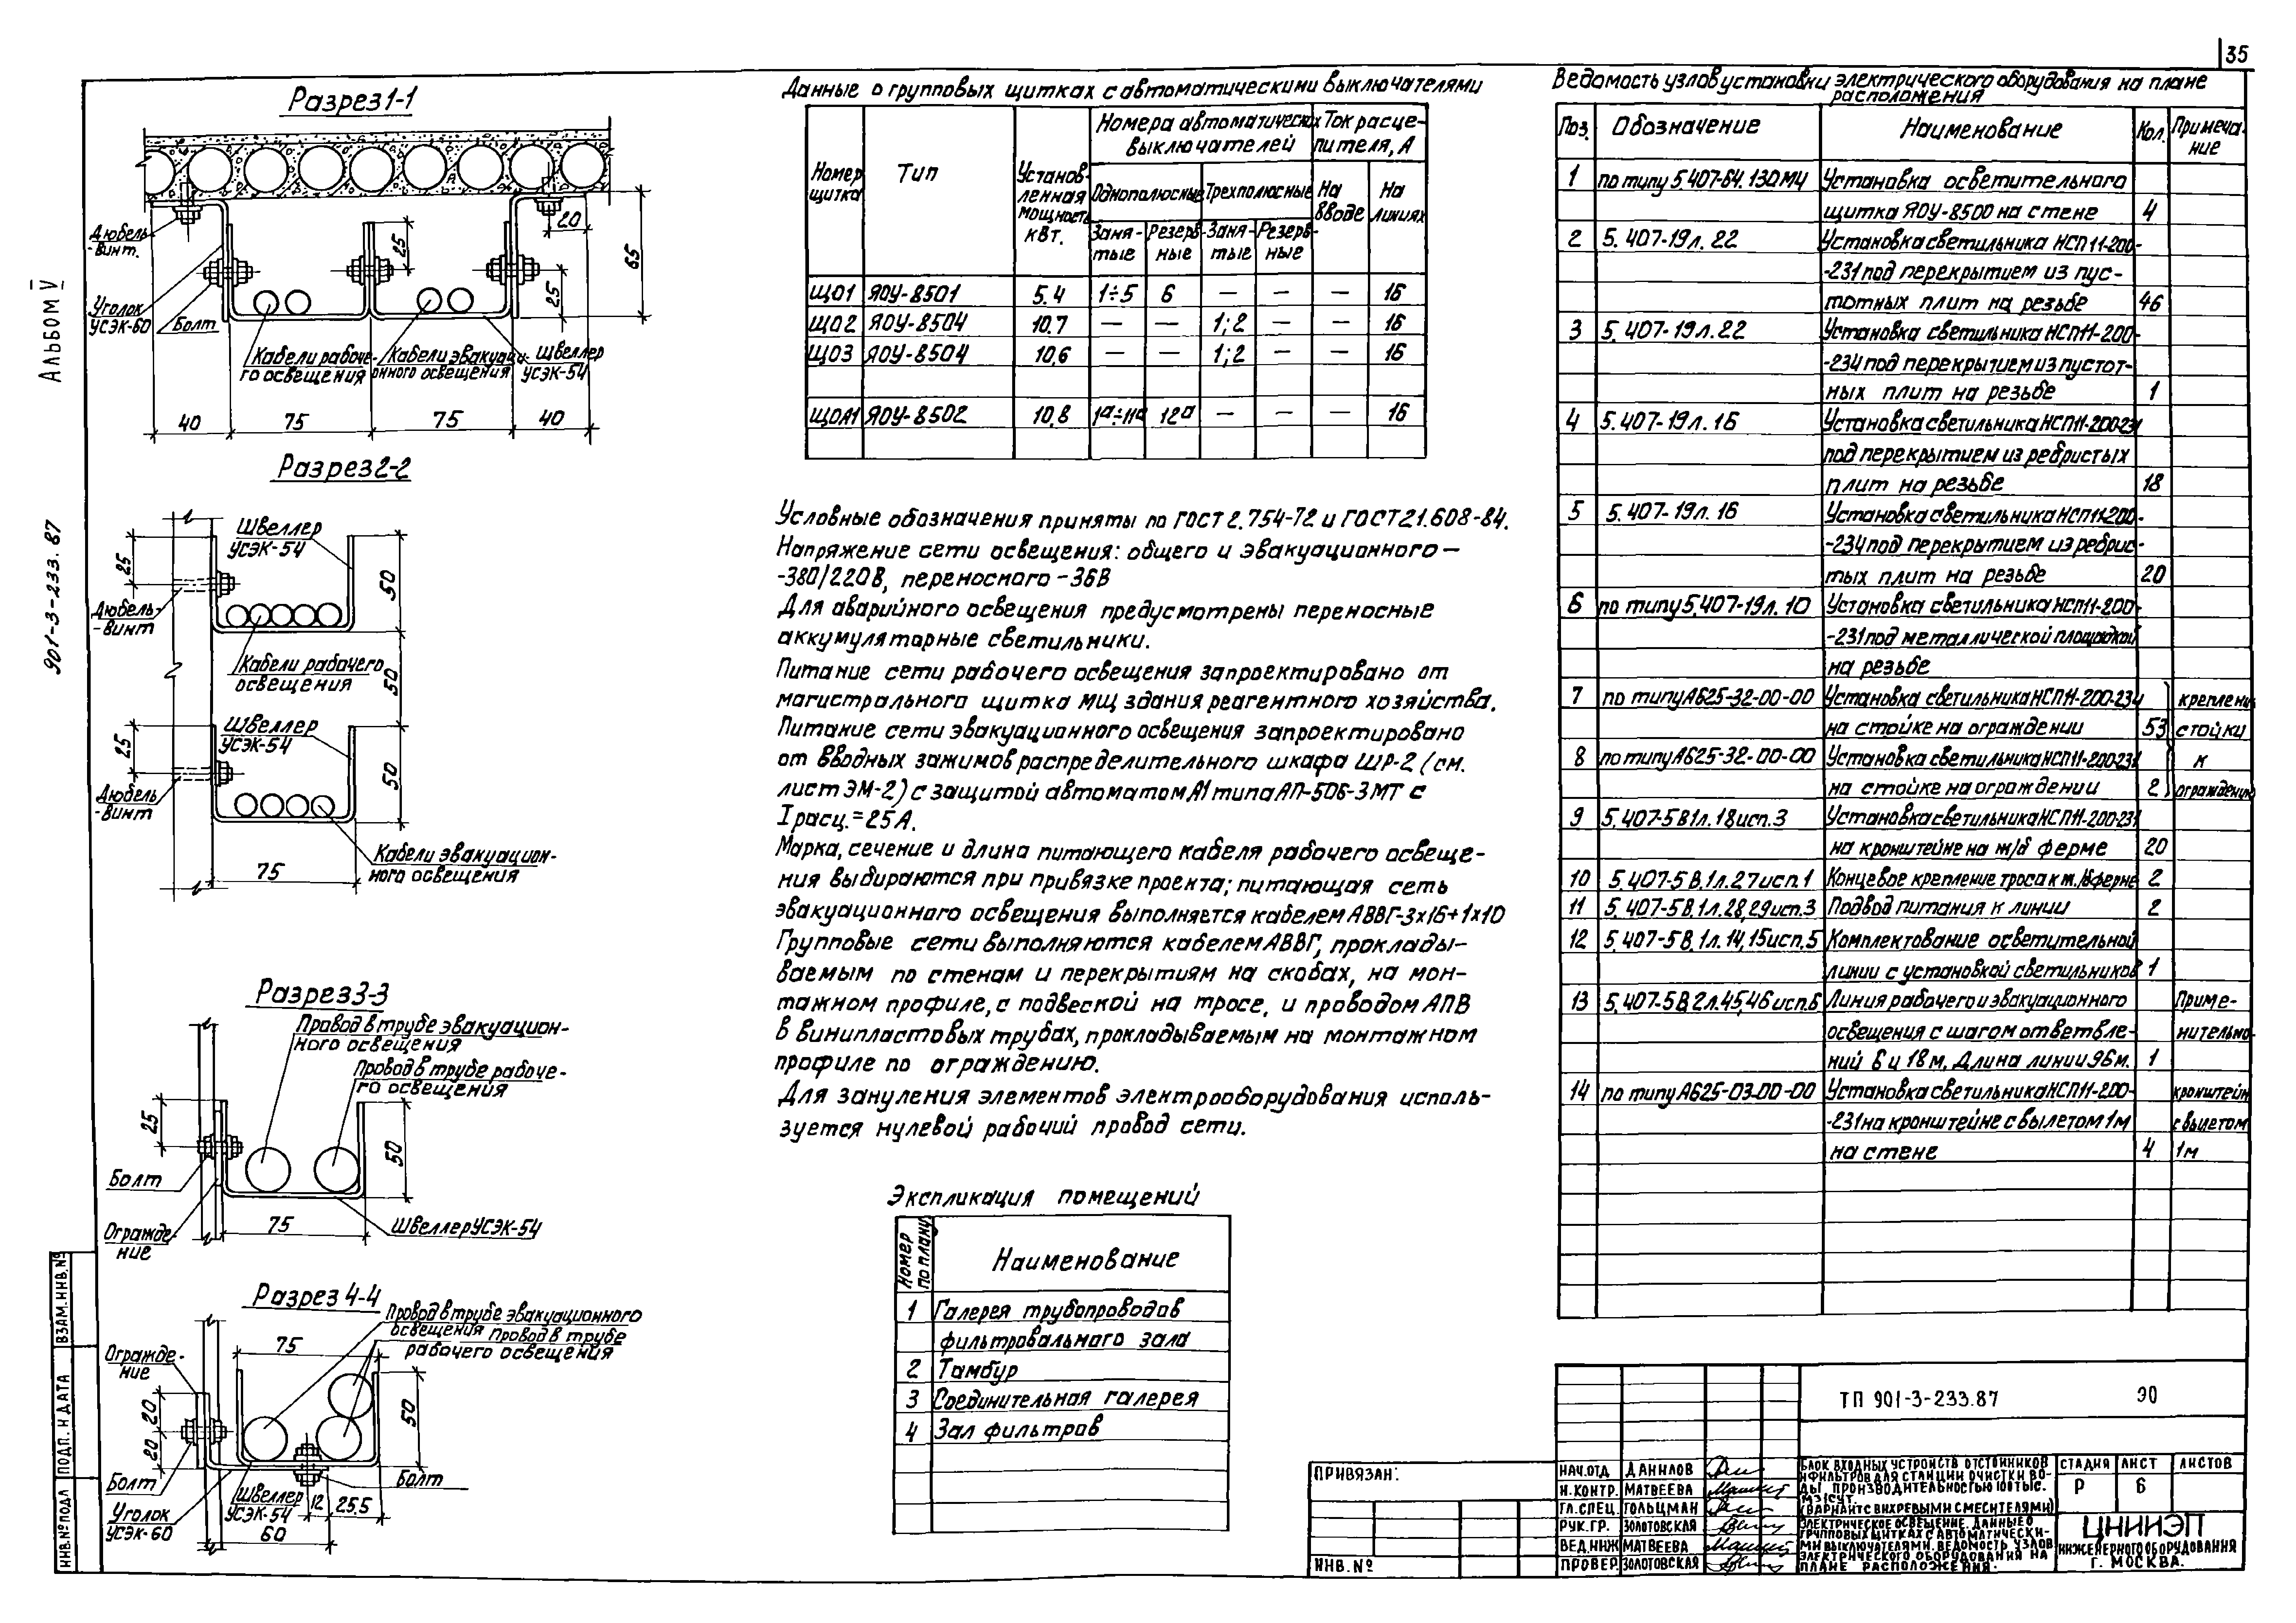 35
АЛЬБОМ V
901-3-233.87
Разрез 1-1
Дюбель-
-винт.
Уголок
УСЭК-60
Болт
Кабели рабоче-
го освещения
Кабели эвакуаци-
онного освещения
Швеллер
УСЭК-54
25
25
20
65
40
75
75
40
Разрез 2-2
Швеллер
УСЭК-54
25
50
Дюбель-
-винт
Кабели рабочего
освещения
50
Швеллер
УСЭК-54
25
50
Дюбель
-винт
Кабели эвакуацион-
ного освещения
75
Разрез 3-3
Провод в трубе эвакуацион-
ного освещения
Провод в трубе рабоче-
го освещения
25
50
Болт
75
Швеллер УСЭК-54
Огражде-
ние
Разрез 4-4
Провод в трубе эвакуационного
освещения
Провод в трубе
рабочего освещения
75
Огражде-
ние
20
20
50
Болт
Болт
Швеллер
УСЭК-54
12
25,5
Уголок
УСЭК-60
60
Данные о групповых щитках с автоматическими выключателями
Номер щитка
Тип
Установ-
ленная
мощность
кВт.
Номера автоматических
выключателей
Ток расце-
пителя, А
Однополюсные
Трехполюсные
На вводе
На линиях
Заня-
тые
Резерв-
ные
Заня-
тые
Резерв-
ные
ЩО1 ЯОУ-8501 5.4 1÷5 6 — — — 16
ЩО2 ЯОУ-8504 10,7 — — 1;2 — — 16
ЩО3 ЯОУ-8504 10,6 — — 1;2 — — 16
ЩОА1 ЯОУ-8502 10,8 1а÷11а 12а — — — 16
Условные обозначения приняты по ГОСТ 2.754-72 и ГОСТ 21.608-84.
Напряжение сети освещения: общего и эвакуационного —
-380/220В, переносного - 36В
Для аварийного освещения предусмотрены переносные
аккумуляторные светильники.
Питание сети рабочего освещения запроектировано от
магистрального щитка МЩ здания реагентного хозяйства.
Питание сети эвакуационного освещения запроектировано
от вводных зажимов распределительного шкафа ШР-2 (см.
лист ЭМ-2) с защитой автоматом А1 типа АП-50Б-3МТ с
Iрасц.=25А.
Марка, сечение и длина питающего кабеля рабочего освеще-
ния выбираются при привязке проекта; питающая сеть
эвакуационного освещения выполняется кабелем АВВГ-3х16+1х10
Групповые сети выполняются кабелем АВВГ, проклады-
ваемым по стенам и перекрытиям на скобах, на мон-
тажном профиле, с подвеской на тросе, и проводом АПВ
в винипластовых трубах, прокладываемым на монтажном
профиле по ограждению.
Для зануления элементов электрооборудования исполь-
зуется нулевой рабочий провод сети.
Экспликация помещений
Номер по плану
Наименование
1 Галерея трубопроводов
фильтровального зала
2 Тамбур
3 Соединительная галерея
4 Зал фильтров
Ведомость узлов установки электрического оборудования на плане
расположения
Поз. Обозначение Наименование Кол. Примеча-
ние
1 по типу 5.407-64.130МЧ Установка осветительного
щитка ЯОУ-8500 на стене 4
2 5.407-19 л.22 Установка светильника НСП11-200-
-231 под перекрытием из пус-
тотных плит на резьбе 46
3 5.407-19 л.22 Установка светильника НСП11-200-
-234 под перекрытием из пустот-
ных плит на резьбе 1
4 5.407-19 л.16 Установка светильника НСП11-200-231
под перекрытием из ребристых
плит на резьбе 18
5 5.407-19 л.16 Установка светильника НСП11-200-
-234 под перекрытием из ребрис-
тых плит на резьбе 20
6 по типу 5.407-19 л.10 Установка светильника НСП11-200-
-231 под металлической площадкой
на резьбе
7 по типу А625-32-00-00 Установка светильника НСП11-200-234 крепление
на стойке на ограждении 53 стойки
8 по типу А625-32-00-00 Установка светильника НСП11-200-231 к
на стойке на ограждении 2 ограждению
9 5.407-5В1 л.18 исп.3 Установка светильника НСП11-200-231
на кронштейне на ж/б ферме 20
10 5.407-5В.1 л.27 исп.1 Концевое крепление троса к ж./б ферме 2
11 5.407-5В.1 л.28,29 исп.3 Подвод питания к линии 2
12 5.407-5В.1 л.14,15 исп.5 Комплектование осветительной
линии с установкой светильников 1
13 5.407-5В.2 л.45,46 исп.6 Линия рабочего и эвакуационного Приме-
освещения с шагом ответвле- нительно
ний 6 и 18 м. Длина линии 96м. 1
14 по типу А625-03-00-00 Установка светильника НСП11-200- кронштейн
-231 на кронштейне с вылетом 1м с вылетом
на стене 4 1м
ВЗАМ.ИНВ.№
ПОДП. И ДАТА
ИНВ.№ПОДЛ
ПРИВЯЗАН:
ИНВ.№
НАЧ.ОТД ДАНИЛОВ
Н.КОНТР. МАТВЕЕВА
ГЛ.СПЕЦ. ГОЛЬЦМАН
РУК.ГР. ЗОЛОТОВСКАЯ
ВЕД.ИНЖ МАТВЕЕВА
ПРОВЕР. ЗОЛОТОВСКАЯ
ТП 901-3-233.87 ЭО
БЛОК ВХОДНЫХ УСТРОЙСТВ ОТСТОЙНИКОВ
И ФИЛЬТРОВ ДЛЯ СТАНЦИИ ОЧИСТКИ ВО-
ДЫ ПРОИЗВОДИТЕЛЬНОСТЬЮ 100 ТЫС.
М3/СУТ.
(ВАРИАНТ С ВИХРЕВЫМИ СМЕСИТЕЛЯМИ)
СТАДИЯ ЛИСТ ЛИСТОВ
Р 6
ЭЛЕКТРИЧЕСКОЕ ОСВЕЩЕНИЕ. ДАННЫЕ О
ГРУППОВЫХ ЩИТКАХ С АВТОМАТИЧЕСКИ-
МИ ВЫКЛЮЧАТЕЛЯМИ. ВЕДОМОСТЬ УЗЛОВ
ЭЛЕКТРИЧЕСКОГО ОБОРУДОВАНИЯ НА
ПЛАНЕ РАСПОЛОЖЕНИЯ.
ЦНИИЭП
ИНЖЕНЕРНОГО ОБОРУДОВАНИЯ
Г. МОСКВА.